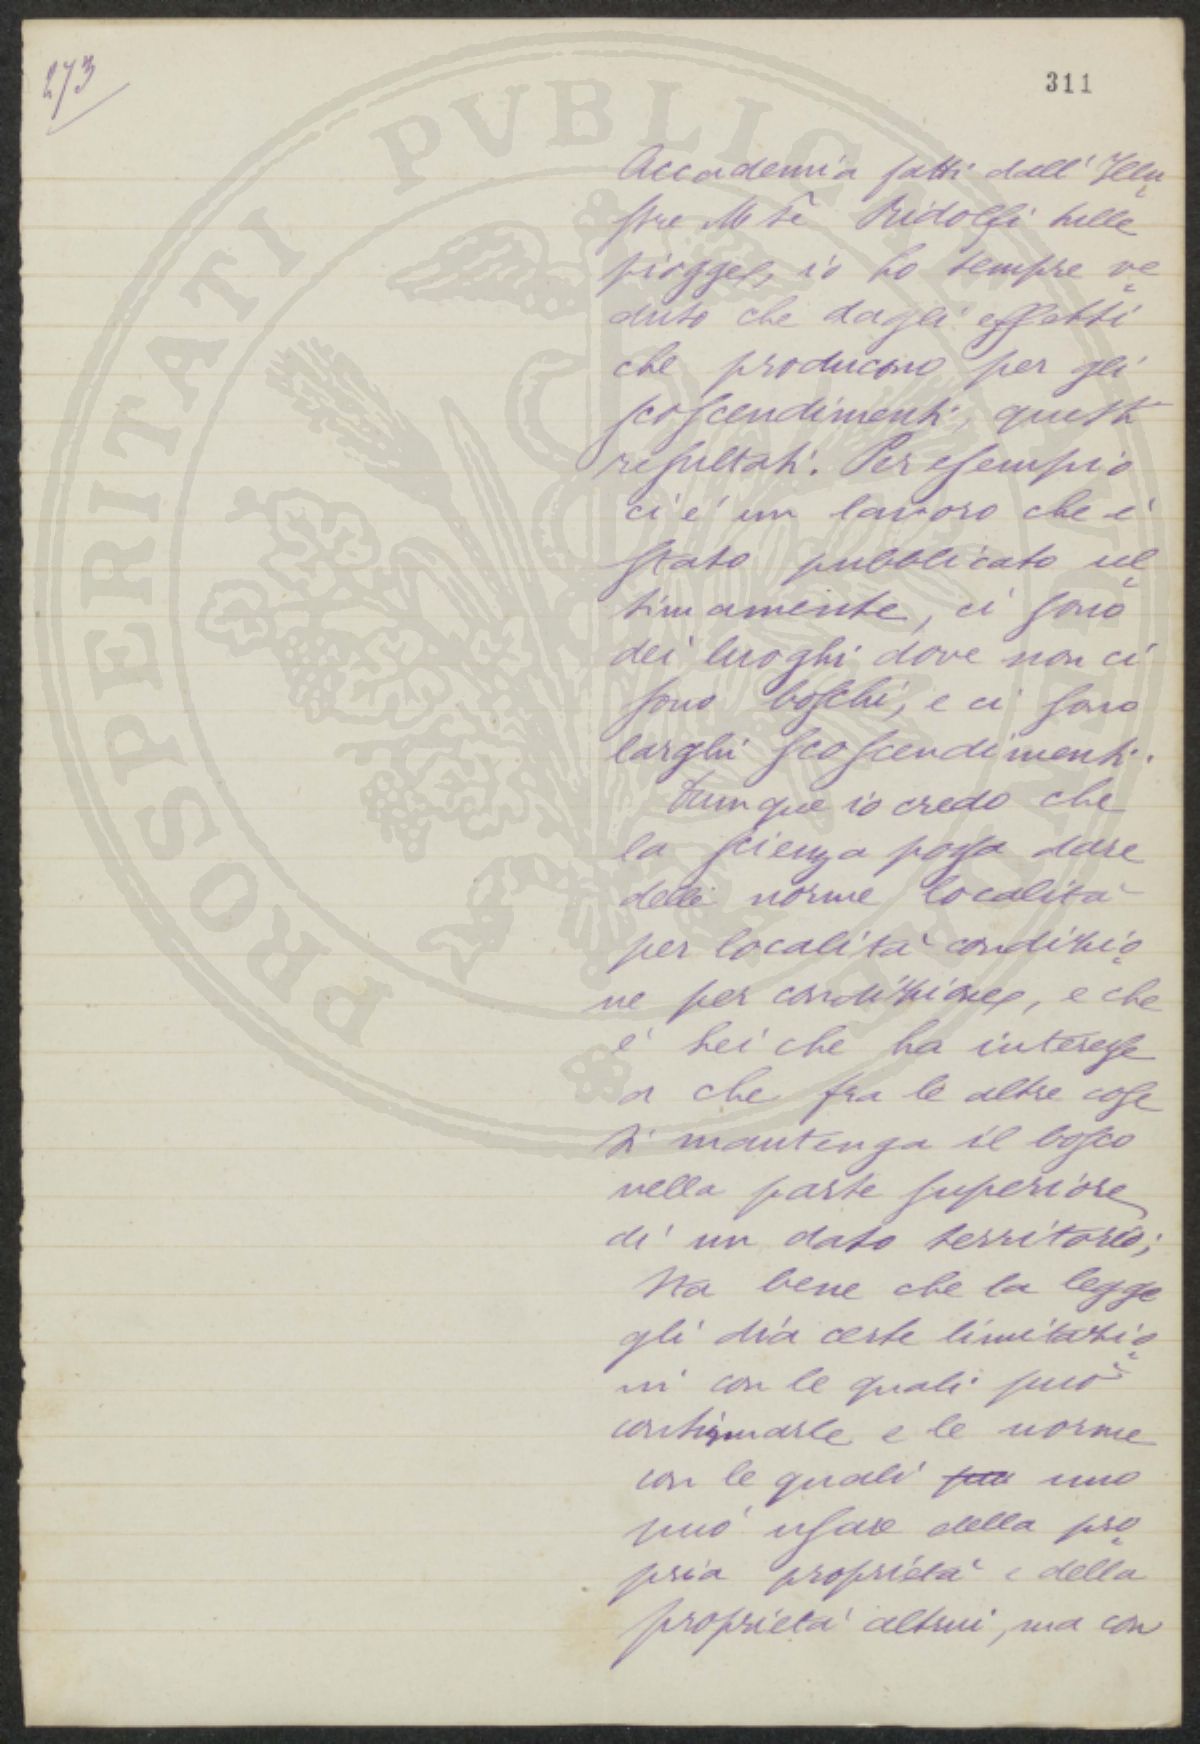 273
311
PROSPERITATI PVBLICAE
Accademia fatti dall' Illu
stre M.se Ridolfi sulle
piogge, io ho sempre ve
duto che dagli effetti
che producono per gli
scoscendimenti, questi
resultati. Per esempio
ci è un lavoro che è
stato pubblicato ul
timamente, ci sono
dei luoghi dove non ci
sono boschi, e ci sono
larghi scoscendimenti.
Dunque io credo che
la scienza possa dare
delle norme località
per località condizio
ne per condizione, e che
è lei che ha interesse
a che fra le altre cose
si mantenga il bosco
nella parte superiore
di un dato territorio;
sta bene che la legge
gli dia certe limitazio
ni con le quali può
continuarle e le norme
con le quali uno
può usare della pro
pria proprietà e della
proprietà altrui, ma con